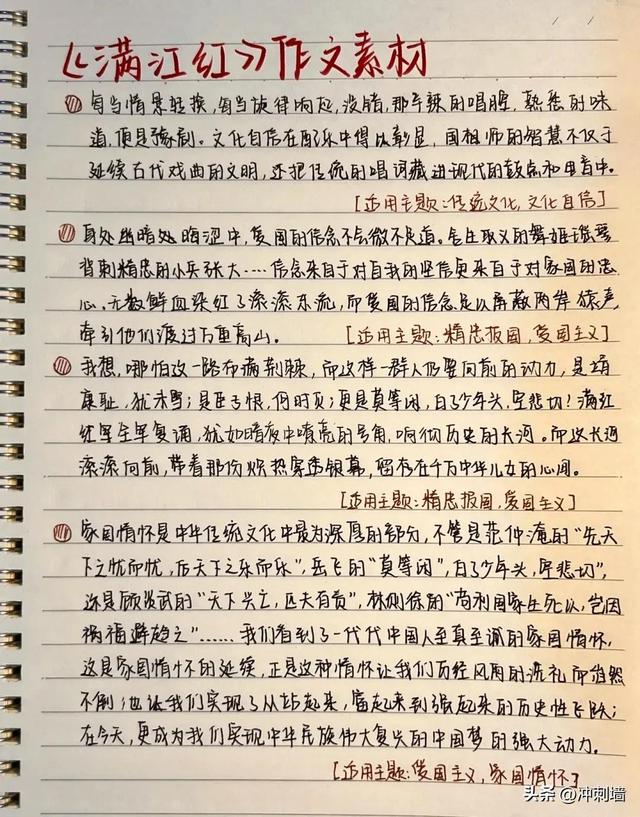 《满江红》作文素材
每当情景转换,每当旋律响起,没错,那辛辣的唱腔,熟悉的味
道,便是豫剧。文化自信在配乐中得以彰显,国祖师的智慧不仅于
延续古代戏曲的文明,还把传统的唱词藏进现代的鼓点和电音中。
[适用主题:传统文化,文化自信]
身处幽暗处晦涩中,爱国的信念不会微不足道。舍生取义的舞姬瑶琴
背刺精忠的小兵张大……信念来自于对自我的坚信臾来自于对家国的忠
心。无数鲜血染红了滚滚东流,而爱国的信念足以屏蔽两岸猿声
牵引他们渡过万重高山。 [适用主题:精忠报国,爱国主义]
我想,哪怕这一路布满荆棘,而这样一群人仍要向前的动力,是靖
康耻,犹未雪;是臣子恨,何时灭;更是莫等闲,白了少年头,空悲切!满江
红军全军复诵,犹如暗夜中嘹亮的号角,响彻历史的长河。而这长河
滚滚向前,带着那份炽热穿透银幕,留存在千万中华儿女的心间。
[适用主题:精忠报国,爱国主义]
家国情怀是中华传统文化中最为深厚的部分,不管是范仲淹的“先天
下之忧而忧,后天下之乐而乐”,岳飞的“莫等闲”,白了少年头,空悲切”,
还是顾炎武的“天下兴亡,匹夫有责”,林则徐的“苟利国家生死以,岂因
祸福避趋之”……我们看到了一代代中国人至真至诚的家国情怀,
这是家国情怀的延续,正是这种情怀让我们历经风雨的洗礼而岿然
不倒;也让我们实现了从站起来,富起来到强起来的历史性飞跃;
在今天,更成为我们实现中华民族伟大复兴的中国梦的强大动力。
[适用主题:爱国主义,家国情怀]
头条 @冲刺墙